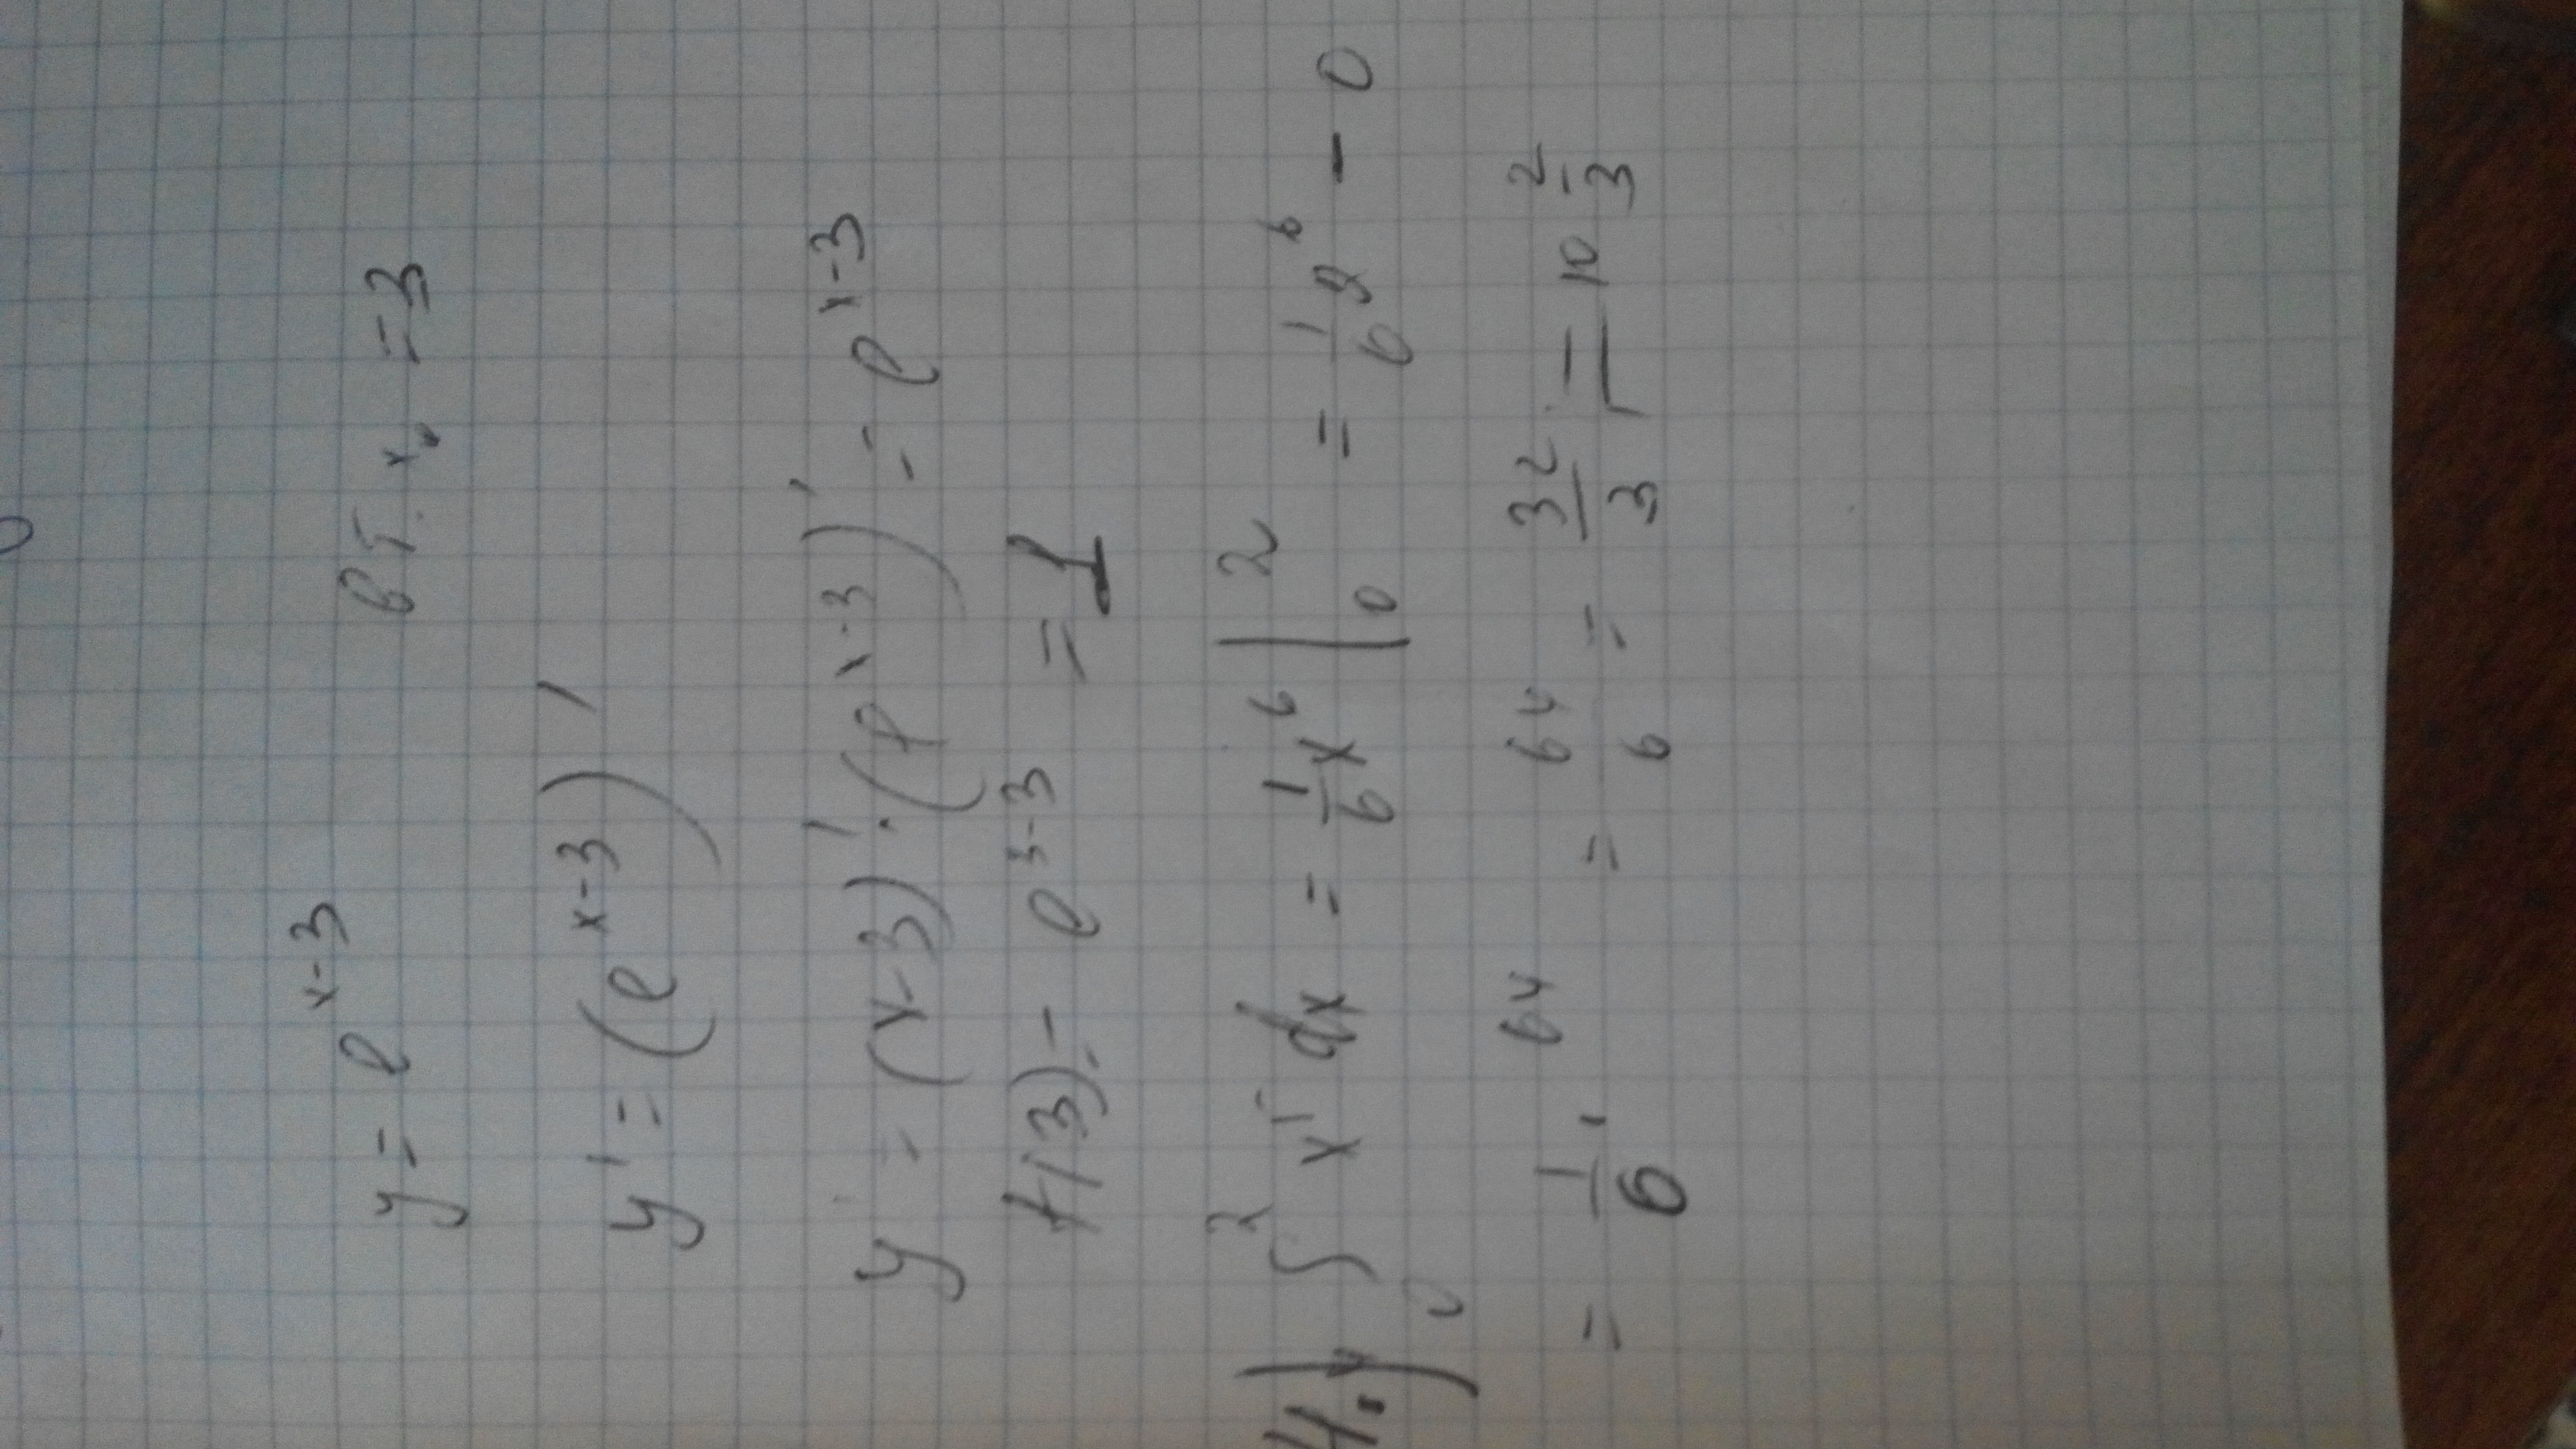 y = e^{x-3} в т. x₀ = 3
y' = (e^{x-3})'
y' = (x-3)' · (e^{x-3})' = e^{x-3}
f(3) = e^{3-3} = 1
4.) ∫₀² x⁵ dx = 1/6 x⁶ |₀² = 1/6 2⁶ - 0
= 1/6 · 64 = 64/6 = 32/3 = 10 2/3